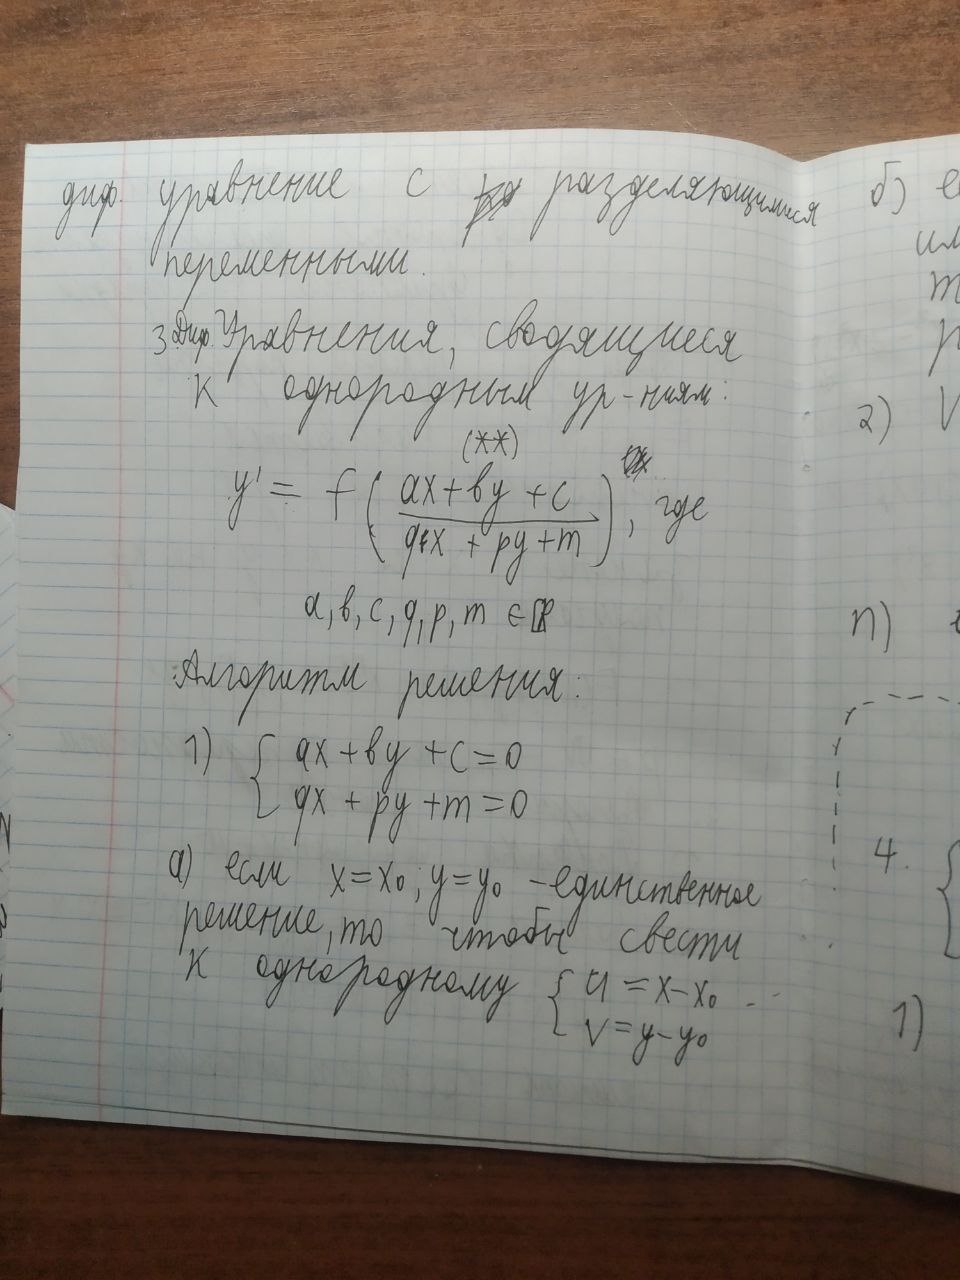 диф. уравнение с разделяющимися
переменными.
3. Диф. Уравнения, сводящиеся
к однородным ур-ниям:
(**)
y' = f( (ax+by+c) / (qx + py+m) ), где
a, b, c, q, p, m ∈ ℝ
Алгоритм решения:
1) { ax+by+c=0
qx + py+m=0
а) если x=x₀; y=y₀ - единственное
решение, то чтобы свести
к однородному { u = x-x₀
v = y-y₀
б) е
им
2) V
n)
4. {
1)